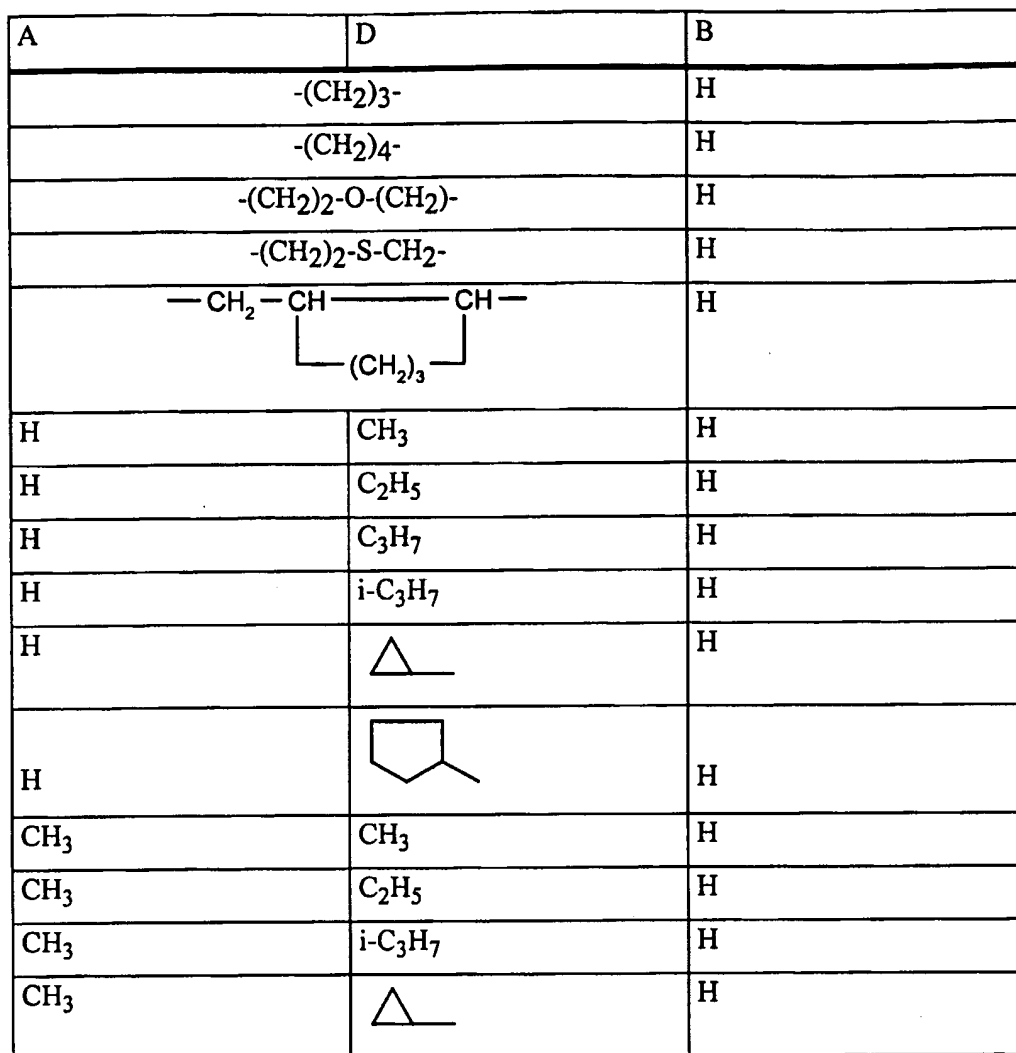 A D B
-(CH2)3- H
-(CH2)4- H
-(CH2)2-O-(CH2)- H
-(CH2)2-S-CH2- H
— CH₂ — CH — CH — H
(CH₂)₃
H CH3 H
H C2H5 H
H C3H7 H
H i-C3H7 H
H H
H H
CH3 CH3 H
CH3 C2H5 H
CH3 i-C3H7 H
CH3 H